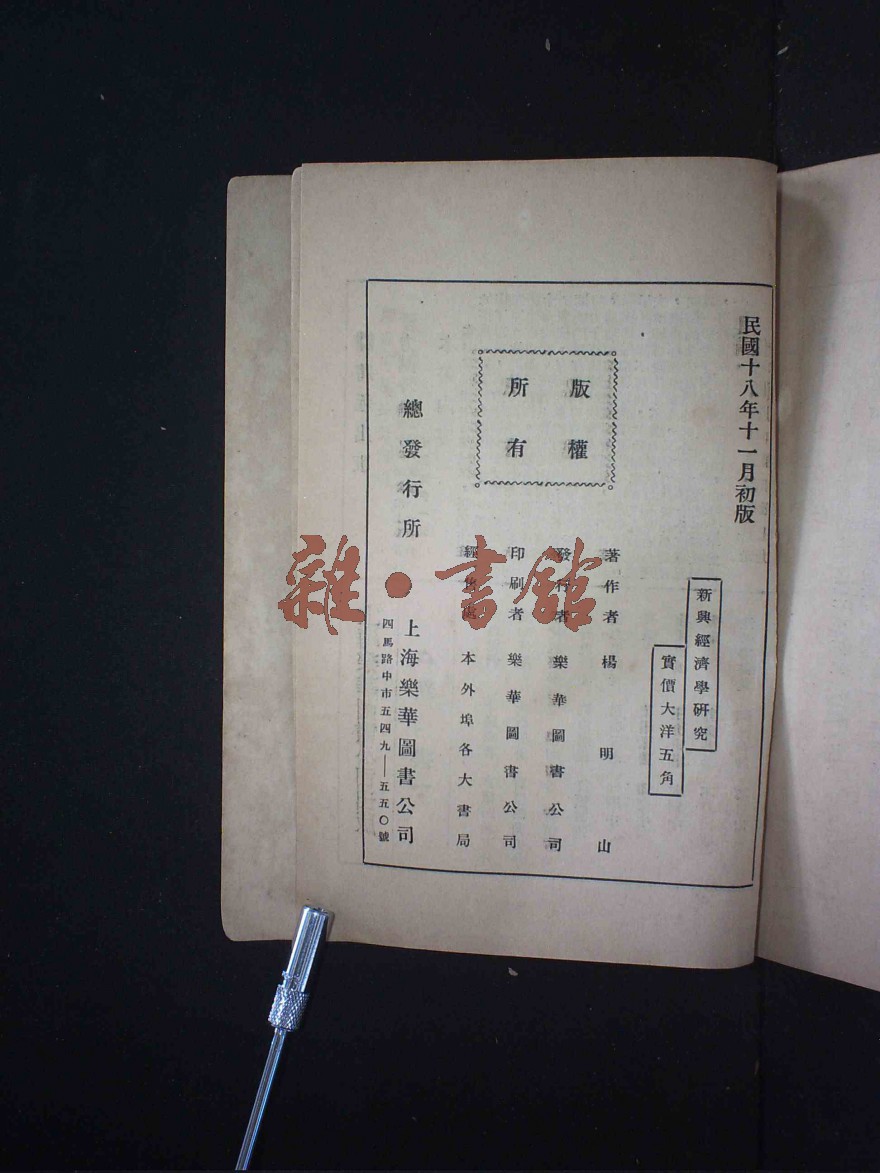 民國十八年十一月初版
新興經濟學研究
實價大洋五角
版權
所有
著作者 楊明山
發行者 樂華圖書公司
印刷者 樂華圖書公司
經售處 本外埠各大書局
總發行所 上海樂華圖書公司
四馬路中市五四九—五五〇號
雜·書館